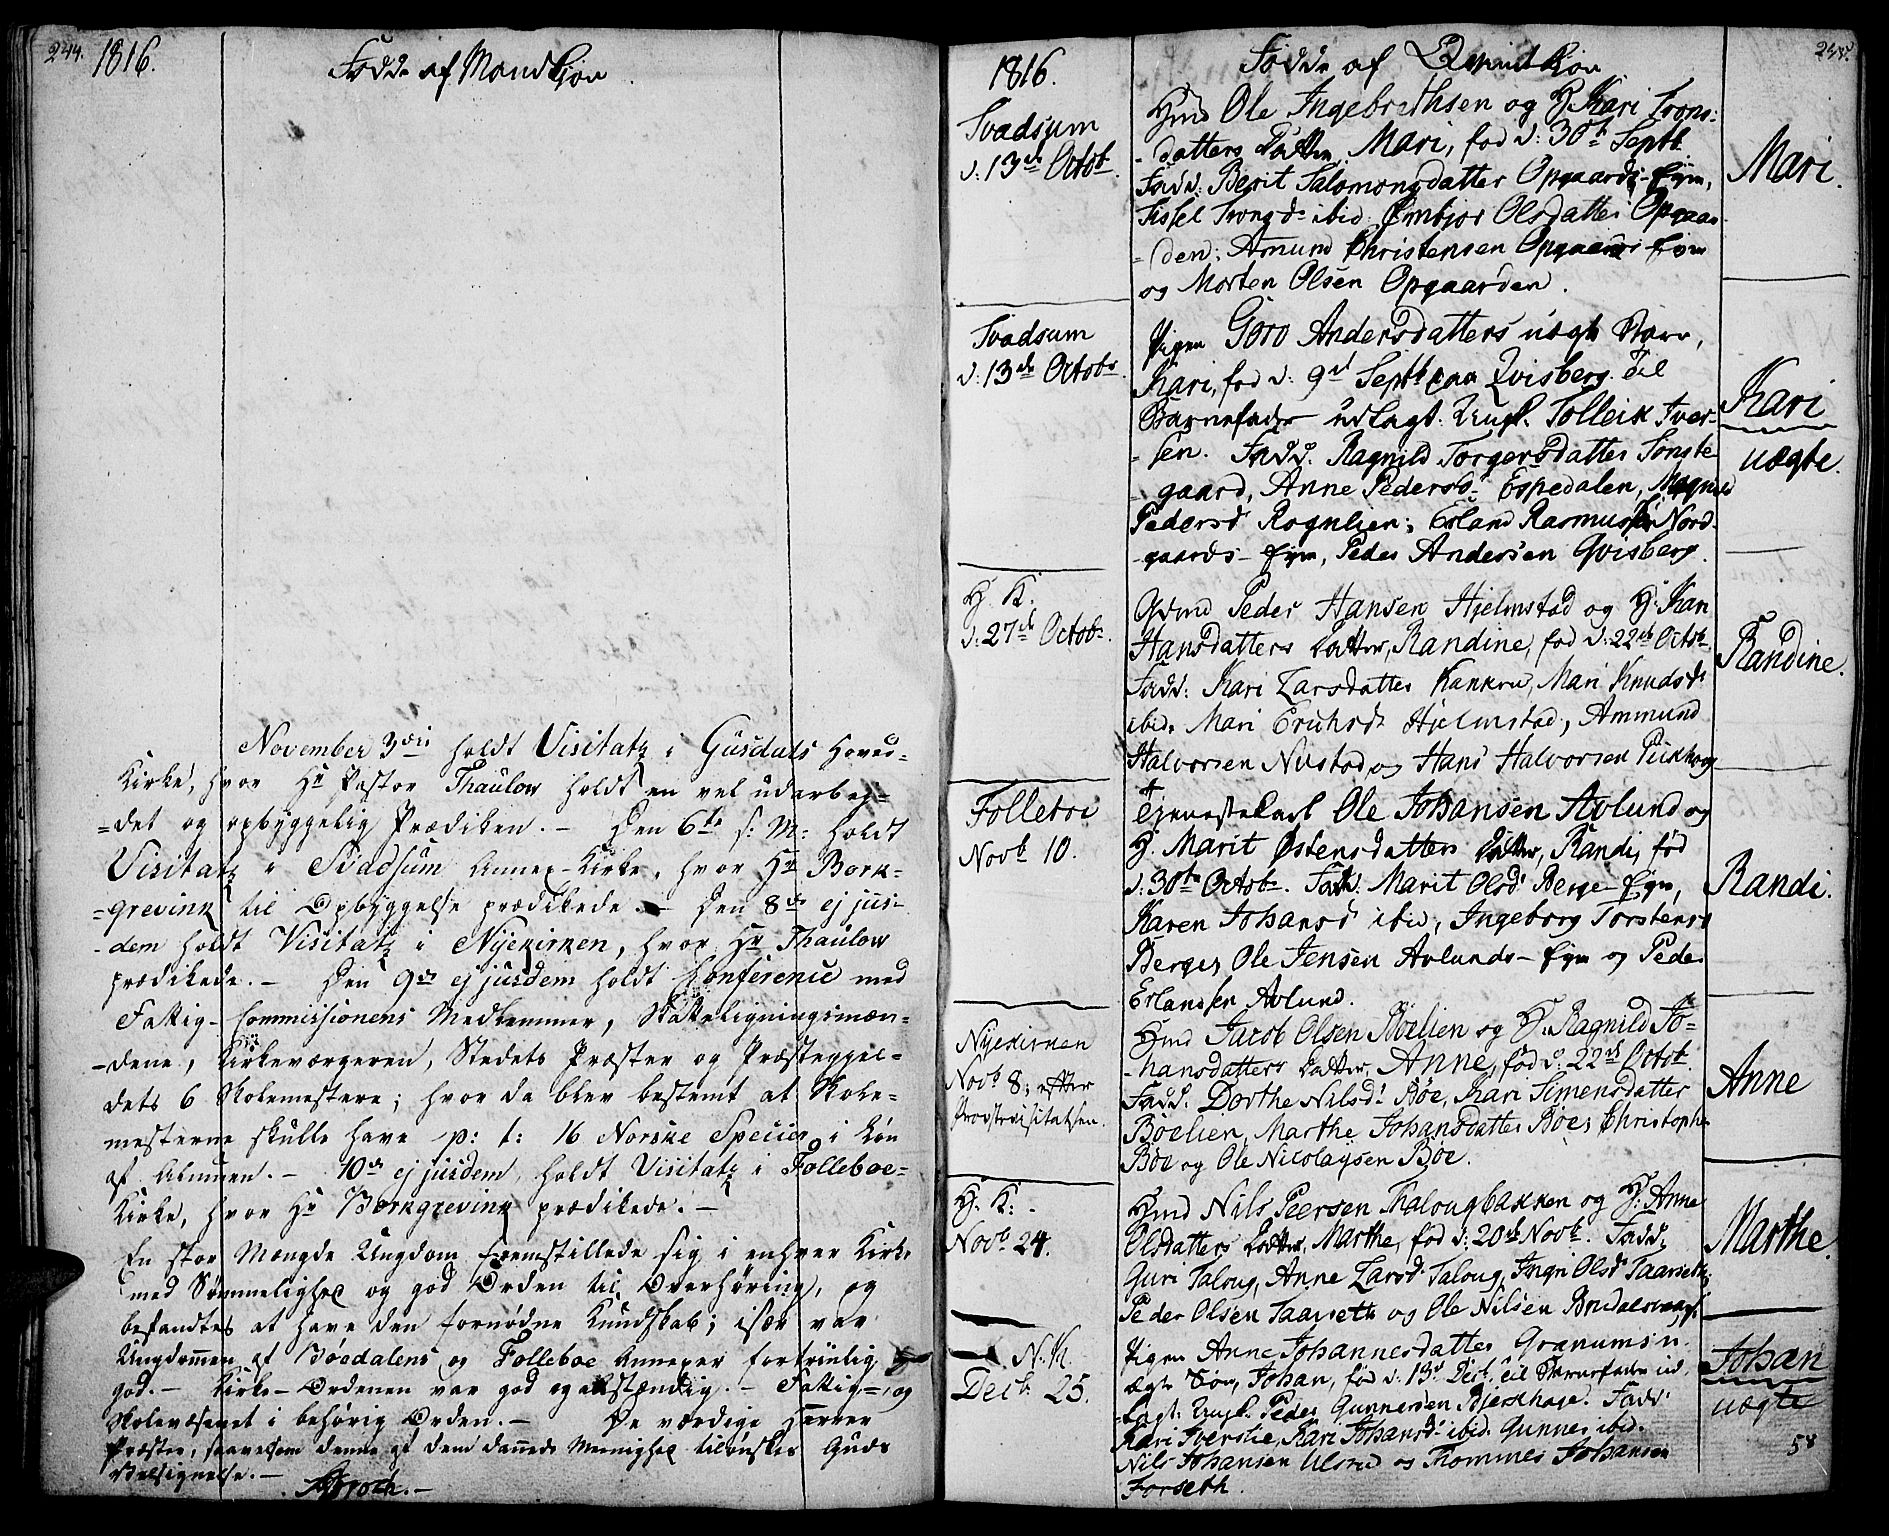 244. 1816.
Födde af Mandkiøn.
November 3die holdt Visitatz i Gusdals Hoved-
Kirke, hvor Hr Pastor Thaulow holdt en vel udarbej-
=det og opbyggelig Prædiken. - Den 6te s: M: holdt
Visitatz i Svadsum Annex-Kirke, hvor Hr Bork-
=grevink til Opbyggelse prædikede. - Den 8de ejjus-
-dem holdt Visitatz i Nyekirken, hvor Hr Thaulow
prædikede. - Den 9de ejjusdem holdt Conference med
Fattig-Commissionens Medlemmer, Skatteligningsmæn-
-dene, Kirkeværgeren, Stedets Præster og Præstegjel-
dets 6 Skolemestere; hvor da blev bestemt at Skole-
mesterne skulle have p: t: 16 Norske Species i Løn
af Almuen. - 10de ejjusdem holdt Visitatz i Folleboe-
Kirke, hvor Hr Borkgrevink prædikede. -
En stor Mængde Ungdom fremstillede sig i enhver Kirke
med Sømmelighed og god Orden til Overhøring, og
befandtes at have den fornødne Kundskab; især var
Ungdommen af Bøedalens og Folleboe Annexer fortrinlig
god. - Kirke-Ordenen var god og anstændig. - Fattig-, og
Skolevæsenet i behørig Orden. - De værdige Herrer
Præster, saavelsom denne af dem dannede Menighed tilønskes Guds
Velsignelse. -
1816.
Födde af Qvindkiøn
Svadsum
d: 13de Octobr.
Hmd Ole Ingebrethsen og H. Kari Trons:
-datters Datter, Mari, fød d: 30te Septb
Fadd: Berit Salomonsdatter Opgaards-Eym,
Sissel Tronsdr ibid. Embjør Olsdatter Opgaar
-den; Amund Christensen Opgaards Eym
og Morten Olsen Opgaarden.
Mari.
Svadsum
d: 13de Octobr
Pigen Goro Andersdatters uægte Barn,
Kari, fød d: 9de Septb paa Qvisberg. Til
Barnefader udlagt: Ungk. Tolleik Iver-
-sen. Fadd. Ragnild Torgersdatter Tongte
-gaard, Anne Pedersd. Espedalen, Magnild
Pedersd Rognlien; Erland Rasmussen Nord-
-gaards-Eym, Peder Andersen Qvisberg.
Kari
uægte.
H. K.
d: 27de Octobr.
Gdmd Peder Hansen Hjelmstad og H: Kari
Hansdatters Datter, Randine, fød d: 22de Octobr
Fadd: Kari Larsdatter Kankrud, Mari Knudsdr
ibid. Mari Erichsdr Hjelmstad, Ammund
Halvorsen Nustad og Hans Halvorsen Pukhoug
Randine.
Folleboe
Novbr 10.
Tjenestekarl Ole Johansen Avlund og
H. Marit Østensdatters Datter, Randi, fød
d: 30te Octobr. Fadd. Marit Olsdr Berge-Eym,
Karen Johansd ibid, Ingeborg Torstensd
Berge, Ole Jensen Avlunds-Eym og Peder
Erlandsen Avlund.
Randi.
Nyekirken
Novbr 8; efter
Provstevisitatsen.
Hmd Jacob Olsen Bøelien og H. Ragnild Jo-
-hansdatters Datter, Anne, fød d: 22de Octobr
Fadd. Dorthe Nilsdr Bøe, Kari Simensdatter
Bøelien, Marthe Johansdatter Bøe, Christopher
Bøe og Ole Nicolaysen Bøe.
Anne
H. K.
Novbr 24.
Hmd Nils Peersen Talougbakken og H: Anne
Olsdatters Datter, Marthe, fød d: 20de Novbr. Fadd;
Guri Taloug, Anne Larsdr Taloug, Ingri Olsd Taarseth,
Peder Olsen Taarseth og Ole Nilsen
Marthe.
N. K.
Decbr 25.
Pigen Anne Johannesdatter Granums u-
ægte Søn, Johan, fød d: 13de Decb. Til Barnefader ud-
-lagt: Ungk. Peder Gunnersen Bjerkhage. Fadd:
Kari Iverslie, Kari Johansdr ibid. Gunner ibid.
Nils Johansen Ulsrud og Thommes Johansen
Forseth.
Johan
uægte
58